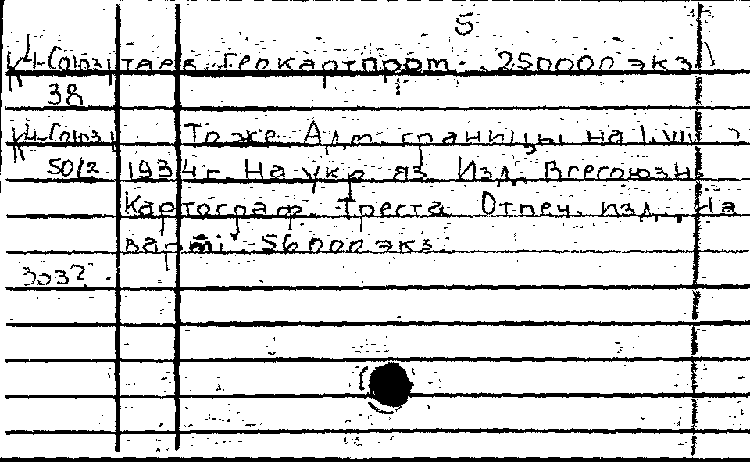 5
К4-Союз таев. Геокартпром. 250000 экз.
38
К4-Союз То же Адм. границы на 1.VII
50/2 1934 г. На укр. яз. Изд. Всесоюзн.
Картограф. Треста. Отпеч. изд. "На
варті". 56000 экз.